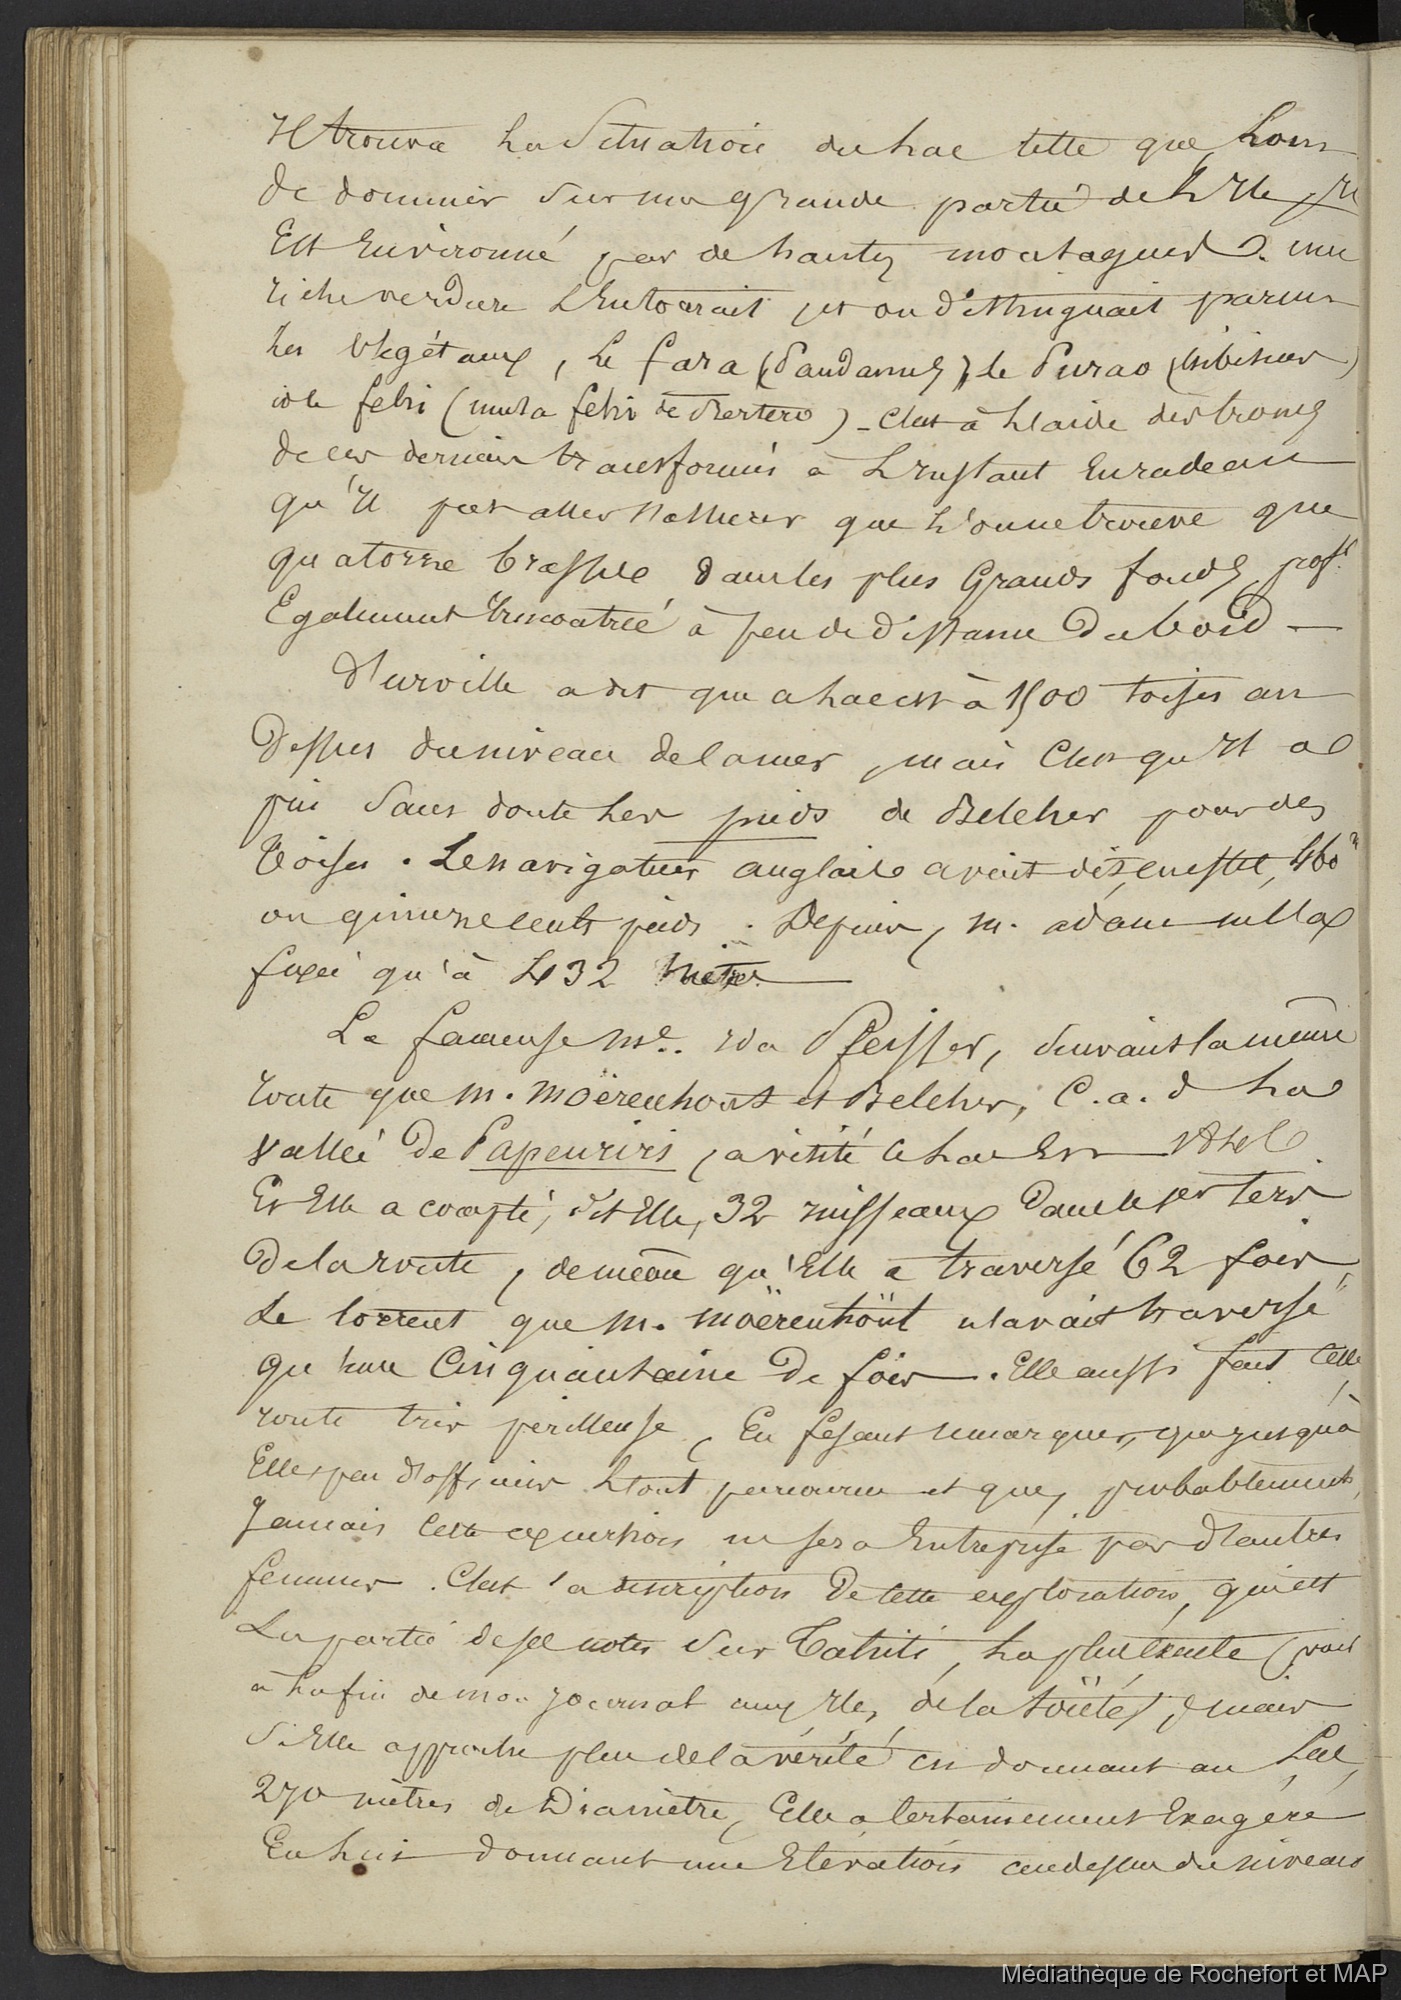 Il trouva la Situation du lac telle que Loin
de dominer Sur une grande partie de L'Ile, Il
Est Environné par de hautes montagnes. une
riche verdure L'Entourait et on distinguait parmi
les Végétaux, le fara (Pandanus), le Purao (hibiscus)
et le fehi (musa fehi de Bertero) - C'est à L'aide des troncs
de ces derniers transformés à L'instant En radeau
qu'Il put aller s'assurer que L'on ne trouve que
quatorze brasses dans les plus Grands fonds, prof.r
Egalement Rencontrée à peu de distance du bord —
D'urville a dit que a lac est à 1500 toises au
Dessus du niveau de la mer, mais C'est qu'Il a
pris Sans doute les pieds de Belcher pour des
toises. Le navigateur anglais avait dit, en effet, 460 m
ou quinze cents pieds. Depuis, M. adam ne l'a
fixée qu'à 432 mètres —
La fameuse Me. Ida Pfeiffer, Suivant la même
route que M. Moërenhout et Belcher, C. a. d La
Vallée De Papeuriri, a visité ce lac En
Et Elle a compté, dit Elle, 32 ruisseaux Dans le 1er tiers
De la route, de même qu'Elle a traversé 62 fois
Le torrent que M. Moërenhout n'avait traversé
qu'une Cinquantaine De fois. Elle aussi fait cette
route très perilleuse, En fesant remarquer, que jusqu'à
Elle peu d'officiers L'ont parcourue et que, probablement,
Jamais cette excursion ne sera Entreprise par D'autres
femmes. C'est la description De cette exploration, qui est
La partie de ses notes Sur Tahiti, la plus Exacte (voir
à La fin de mon journal aux Iles de la Société), mais
Si Elle approche plus de la vérité en donnant au Lac,
270 mètres de Diamètre, Elle a Certainement Exagéré
En lui donnant une Elévation au dessus du niveau
Médiathèque de Rochefort et MAP